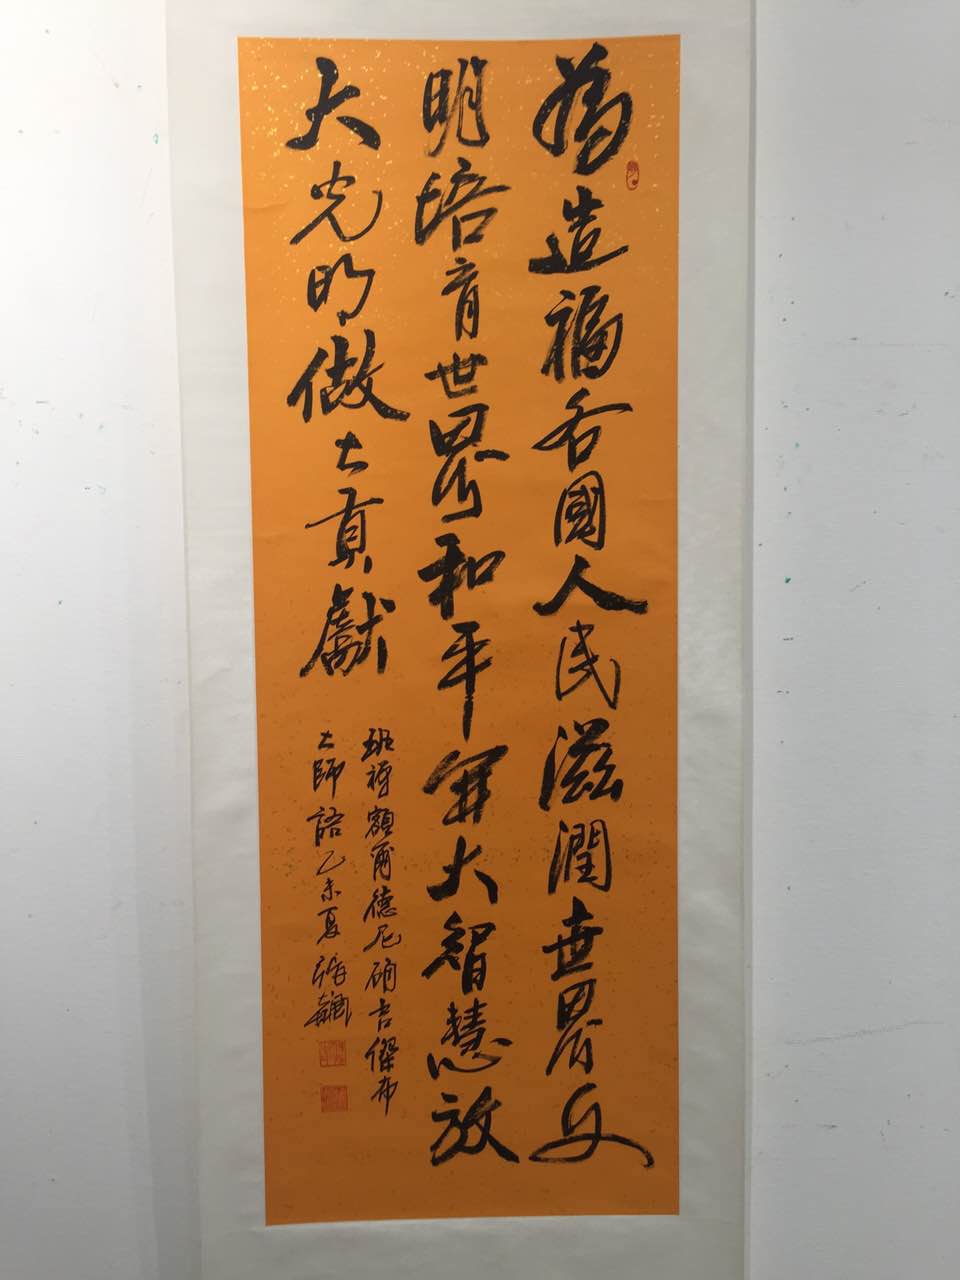 為造福各國人民滋潤世界文
明培育世界和平開大智慧放
大光明做大貢獻
班禪額爾德尼確吉傑布
大師語乙未夏張飈